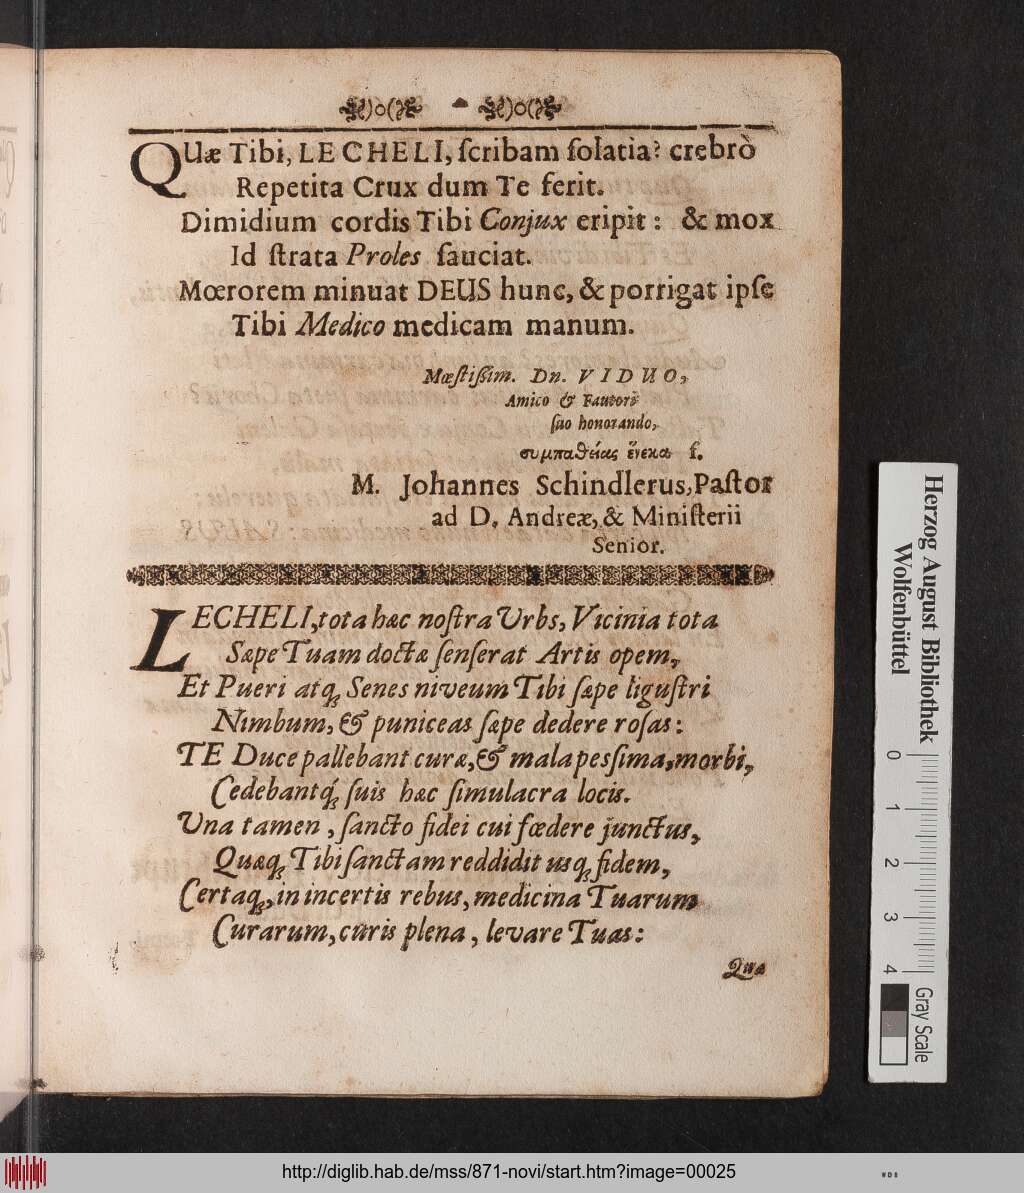 QUæ Tibi, LECHELI, ſcribam ſolatia? crebrò
Repetita Crux dum Te ferit.
Dimidium cordis Tibi Conjux eripit: & mox
Id ſtrata Proles ſauciat.
Mœrorem minuat DEUS hunc, & porrigat ipſe
Tibi Medico medicam manum.
Mœſtiſſim. Dn. VIDUO,
Amico & Fautori
ſuo honorando,
συμπαθείας ἕνεκα f.
M. Johannes Schindlerus, Paſtor
ad D. Andreæ, & Miniſterii
Senior.
LECHELI, tota hæc noſtra Urbs, Vicinia tota
Sæpe Tuam doctæ ſenſerat Artis opem,
Et Pueri atq; Senes niveum Tibi ſæpe liguſtri
Nimbum, & puniceas ſæpe dedere roſas:
TE Duce pallebant curæ, & mala pesſima, morbi,
Cedebantq́; ſuis hæc ſimulacra locis.
Una tamen, ſancto fidei cui fœdere junctus,
Quæq; Tibi ſanctam reddidit usq; fidem,
Certaq;, in incertis rebus, medicina Tuarum
Curarum, curis plena, levare Tuas:
Quæ
Herzog August Bibliothek
Wolfenbüttel
0 1 2 3 4
Gray Scale
http://diglib.hab.de/mss/871-novi/start.htm?image=00025
WDB